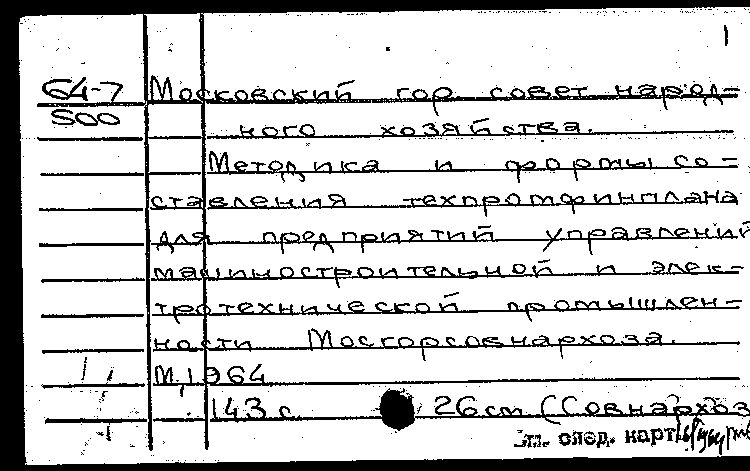 1
64-7 Московский гор. совет народ-
500 ного хозяйства.
Методика и формы со-
ставления техпромфинплана
для предприятий управлений
машиностроительной и элек-
тротехнической промышлен-
ности Мосгорсовнархоза.
М., 1964
143 с. 26 см (Совнархоз
См. след. карт.